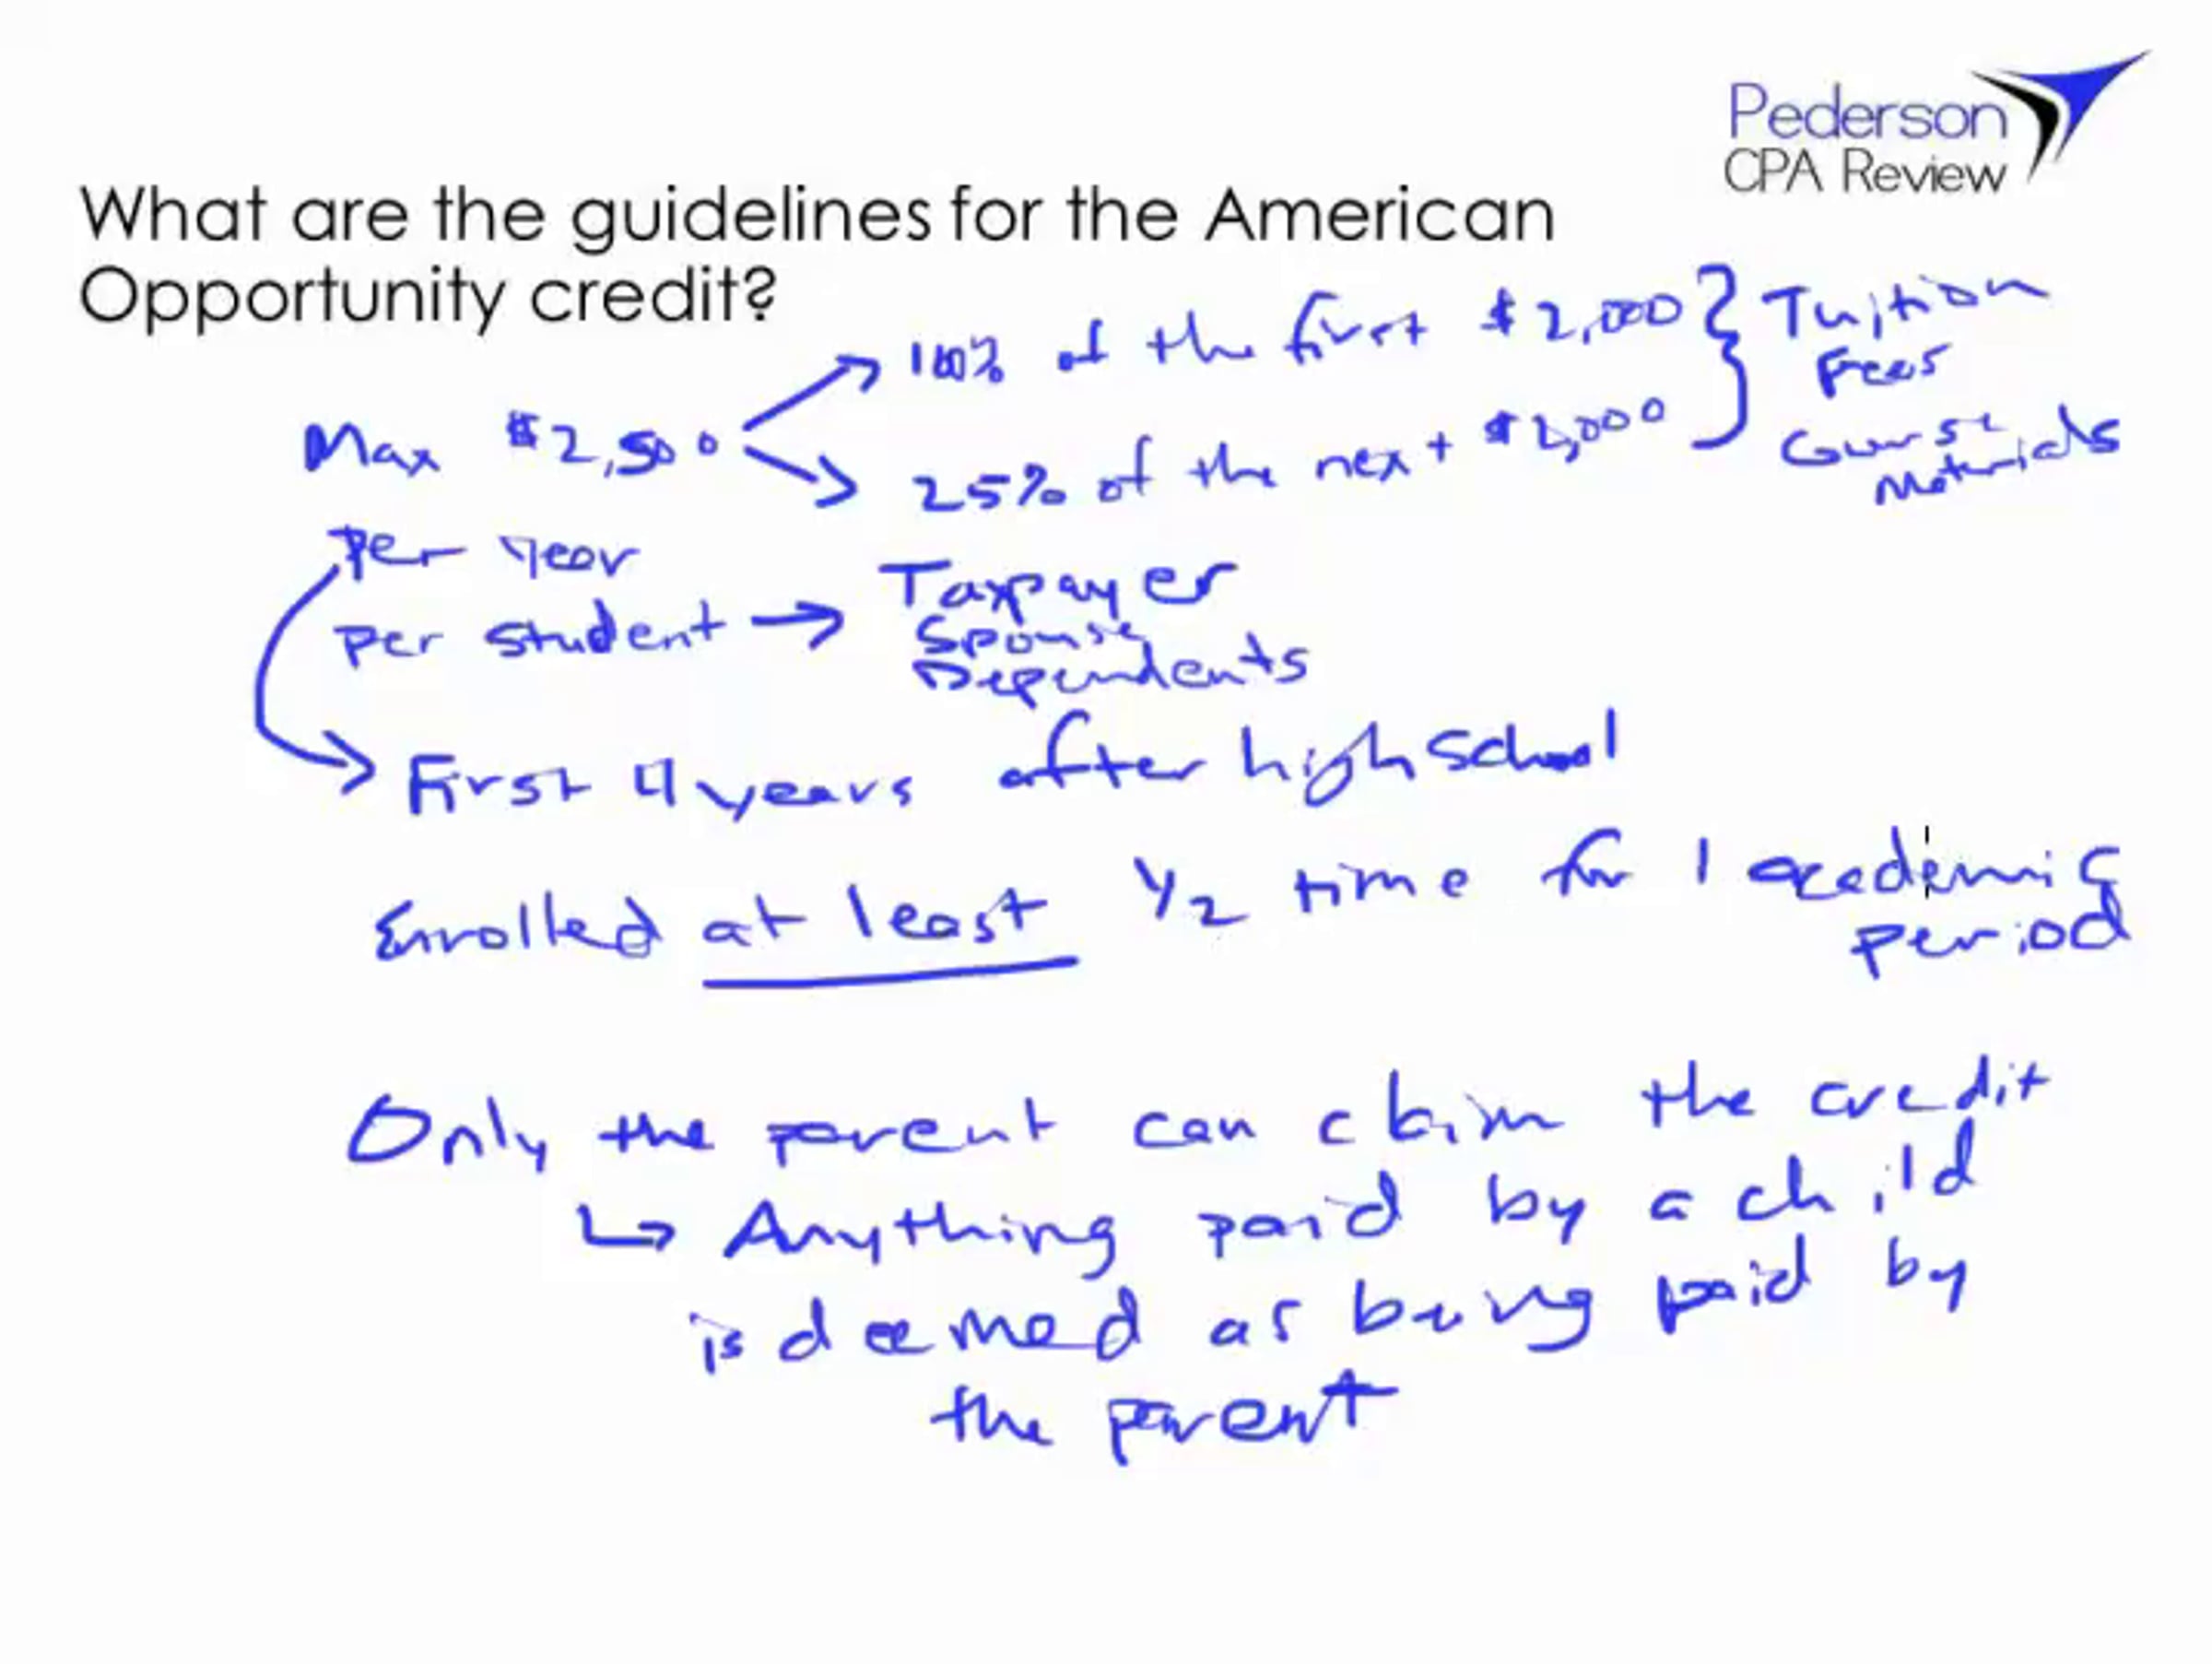 Pederson
CPA Review
What are the guidelines for the American
Opportunity credit?
100% of the first $2,000 } Tuition
Fees
Max $2,500
25% of the next $2,000
Course
Materials
per year
per student → Taxpayer
Spouse
Dependents
First 4 years after high school
Enrolled at least 1/2 time for 1 academic
period
Only the parent can claim the credit
↳ Anything paid by a child
is deemed as being paid by
the parent